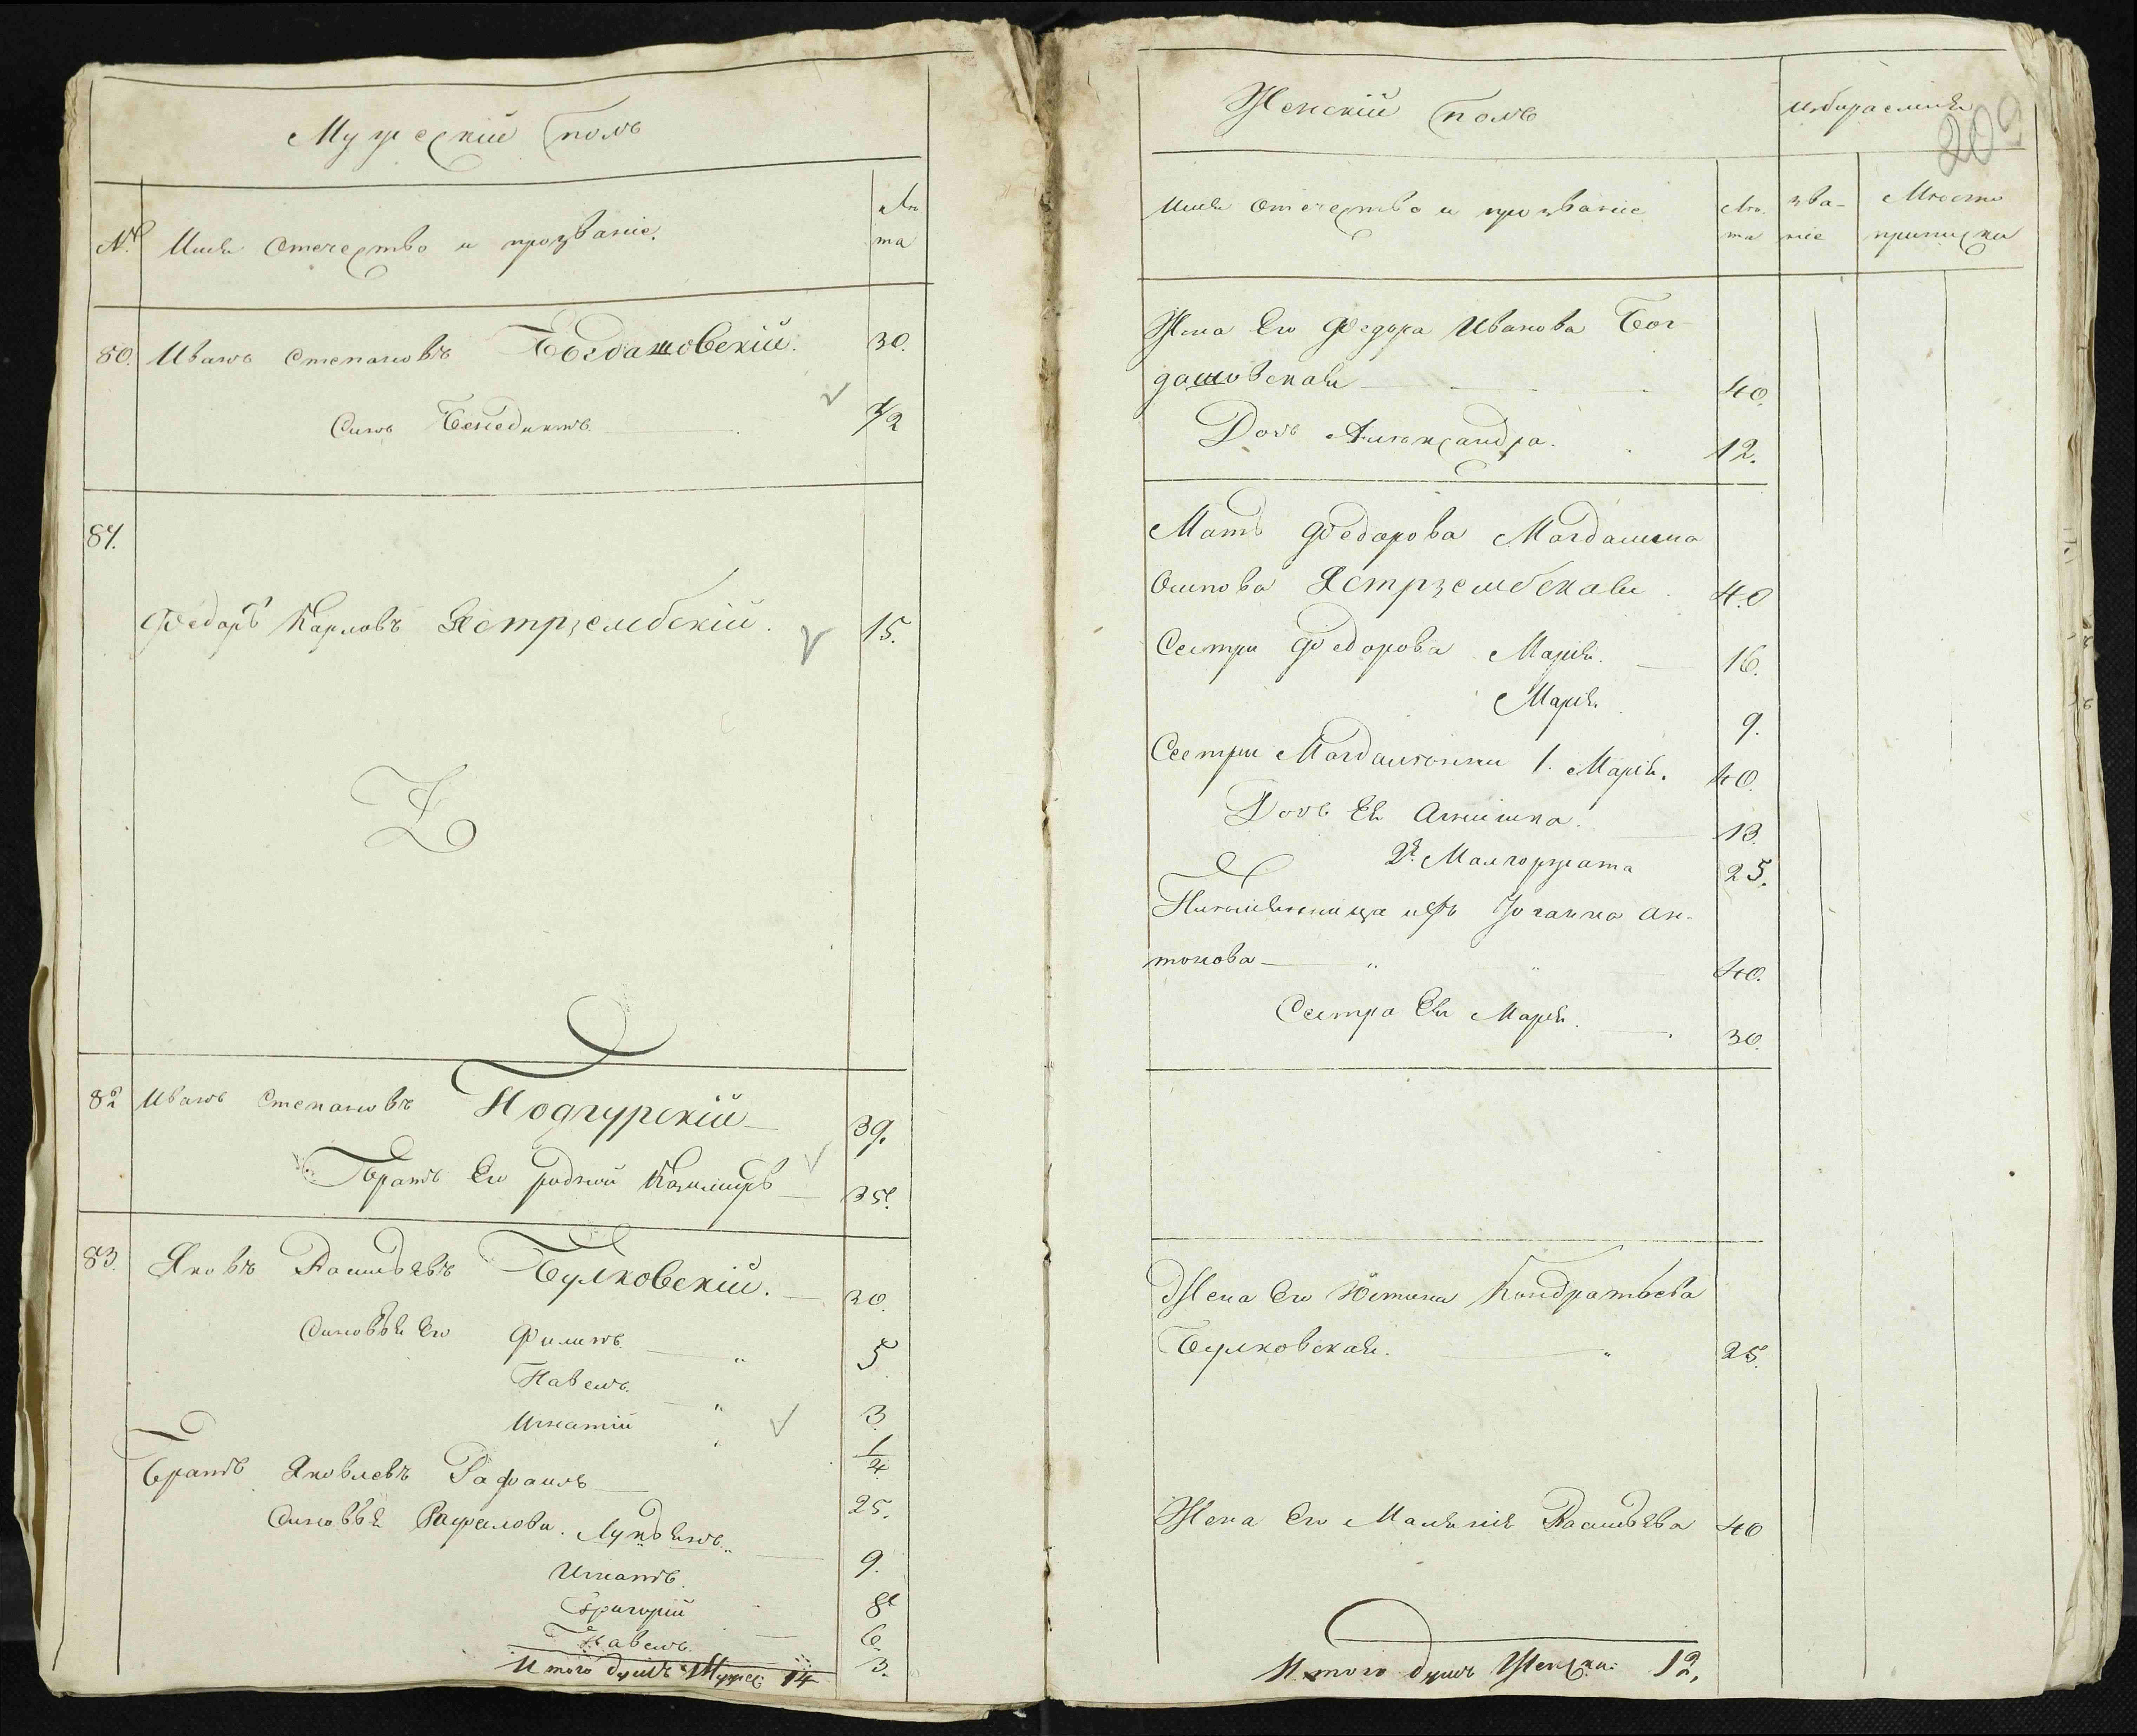 Мужескій полъ
№ Имя Отечество и прозваніе. Лѣ
та
80. Иванъ Степановъ Богдашовскій. 30.
Сынъ Бенедиктъ 1/2
81.
Федоръ Карловъ Ястрзембскій. 15.
82 Иванъ Степановъ Подгурскій 39.
Братъ Его родной Казимиръ 35.
83. Яковъ Васильевъ Булковскій. 30.
Синовья Его Филипъ 5
Павелъ 3
Игнатій 1/4
Братъ Яковлевъ Рафаилъ 25.
Синовья Рафалови. Лукьянъ 9.
Игнатъ 8
Григорій 6
Павелъ 3.
Итого душъ Мужес: 14
Женскій полъ
избираемыя
209
Имя Отечество и прозваніе Лѣ
та
зва-
ніе
Мѣсто
приписки
Жена Его Федора Иванова Бог
дашовская 40.
Дочь Александра. 12.
Мать Федорова Магдалена
Осипова Ястрзембская 40
Сестри Федорова Марія. 16.
Марія. 9.
Сестри Магдаленни 1. Марія. 40.
Дочь Ея 13.
2я Малгоржата 25.
ихъ Юганна Ан-
тонова 40.
Сестра Ея Марія. 30.
Жена Его Юстина Кондратьева
Булковская. 25.
Жена Его Маланія Васильева 40
Итого душъ Женски: 12.